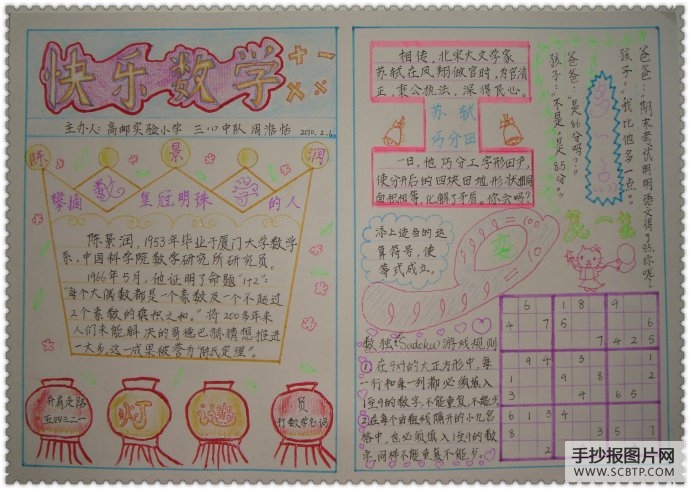 快乐数学
主办人：高邮实验小学 三·17中队 周浩恬 2010.2.6
陈 景 润
攀摘数皇冠明珠 的人
陈景润，1953年毕业于厦门大学数学
系，中国科学院数学研究所研究员。
1966年5月，他证明了命题“1+2”：
“每个大偶数都是一个素数及一个不超过
2个素数的乘积之和。”将200多年来
人们未能解决的哥德巴赫猜想推进
一大步，这一成果被誉为“陈氏定理”。
开肩走路
五四三二一
灯
谜
员
打数学名词
相传，北宋大文学家
苏轼在凤翔做官时，为官清
正，秉公执法，深得民心。
苏轼
巧分田
一日，他巧分工字形田尹，
使分开后的四块田地形状相同
面积相等，化解了矛盾。你会吗？
添上适当的运
算符号，使
等式成立。
变
爸爸：“期末考试明明语文得了85，你呢？”
孩子：“我比他多一点。”
爸爸：“是86分吗？”
孩子：“不是，是8.5分。”
笑一笑
数独(Sudoku)游戏规则
①在9×9的大正方形中，每
一行和每一列都必须填入
1至9的数字，不能重复，不能少
②在每个由粗线隔开的小九宫
格中，也必须填入1至9的数
字，同样不能重复不能少。
6 1 8 9
4 7 5 6
7 4 2 5
9 4 3 1
1 9 8 2
3 4 6 5
6 1 3 4
手抄报图片网
WWW.SCBTP.COM